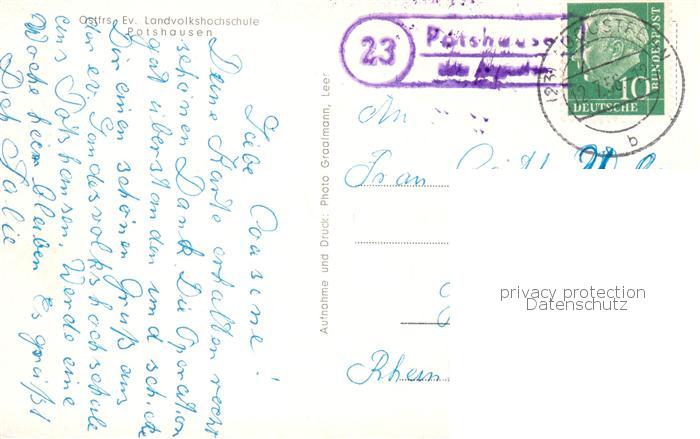 Ostfrs. Ev. Landvolkshochschule
Potshausen
Liebe Cousine!
Deine Karte erhalten recht
schönen Dank. Die Operation
gut überstanden und schicke
Dir einen schönen Gruß aus
der ev. Landesvolkshochschule
aus Potshausen. Werde eine
Woche hier bleiben. Es grüßt
Dich
Aufnahme und Druck: Photo Graalmann, Leer
23
Potshausen
DEUTSCHE
BUNDESPOST
10
b
An
Frau
Rhein
privacy protection
Datenschutz